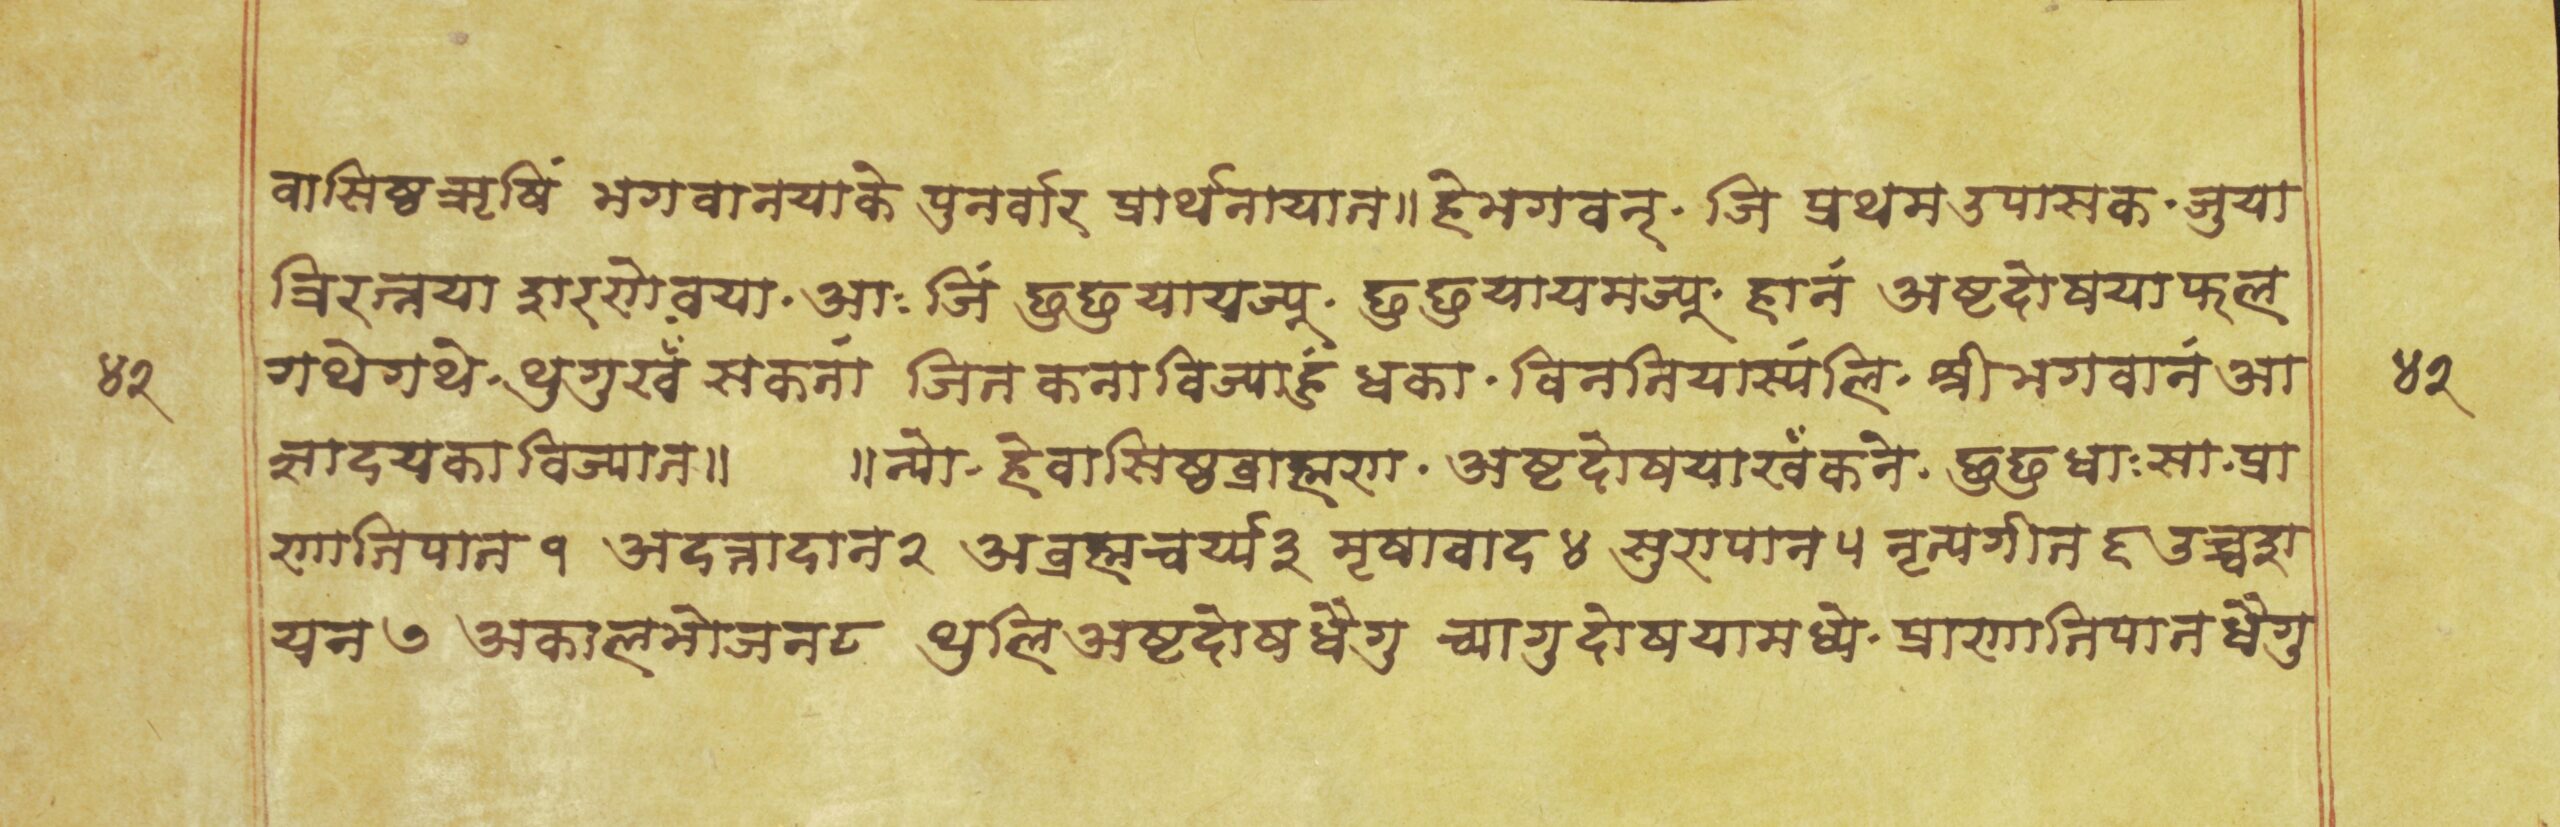 वासिष्ठऋषिं भगवानयाके पुनर्वार प्रार्थनायात॥ हेभगवन्· जि प्रथमउपासक· जुया
त्रिरत्नया शरणे वया· आः जिं छुछुयायज्यू· छुछुयायमज्यू· हानं अष्टदोषयाफल
४२ गथेगथे· थुगुखँ सकतां जितकनाविज्याहुँ धका· विनतियास्यंलि· श्रीभगवानं आ ४२
ज्ञादयकाविज्यात॥ ॥न्यो· हेवासिष्ठब्राह्मण· अष्टदोषयाखँकने· छुछुधाःसा· प्रा
णातिपात १ अदत्तादान २ अब्रह्मचर्य्य ३ मृषावाद ४ सुरापान ५ नृत्यगीत ६ उच्चश
यन ७ अकालभोजन ८ थुलिअष्टदोषधैगु च्यागुदोषयामध्ये· प्राणातिपातधैगु